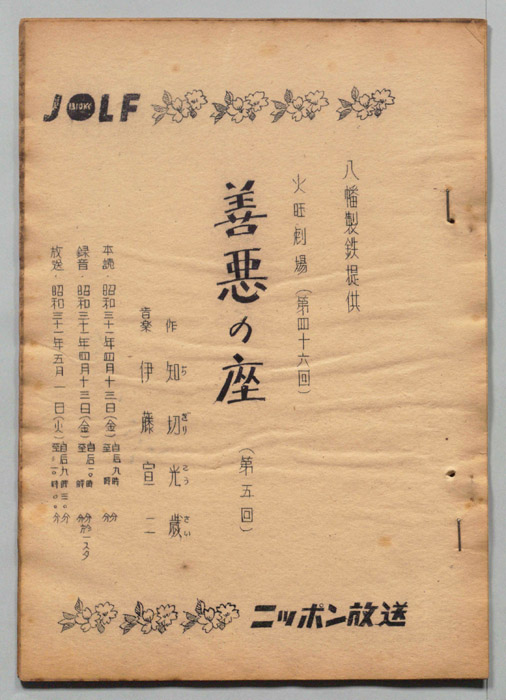 JOLF
八幡製鉄提供
火曜劇場（第四十六回）
善悪の座
（第五回）
作 知切光歳
ちぎりこうさい
音楽 伊藤宣二
本読・昭和三十一年四月十三日（金）自后九時 至 時 分
録音・昭和三十一年四月十三日（金）自后一〇時 至 時 分 於一スタ
放送・昭和三十一年五月一日（火）自后九時三〇分 至〃一〇時〇〇分
ニッポン放送